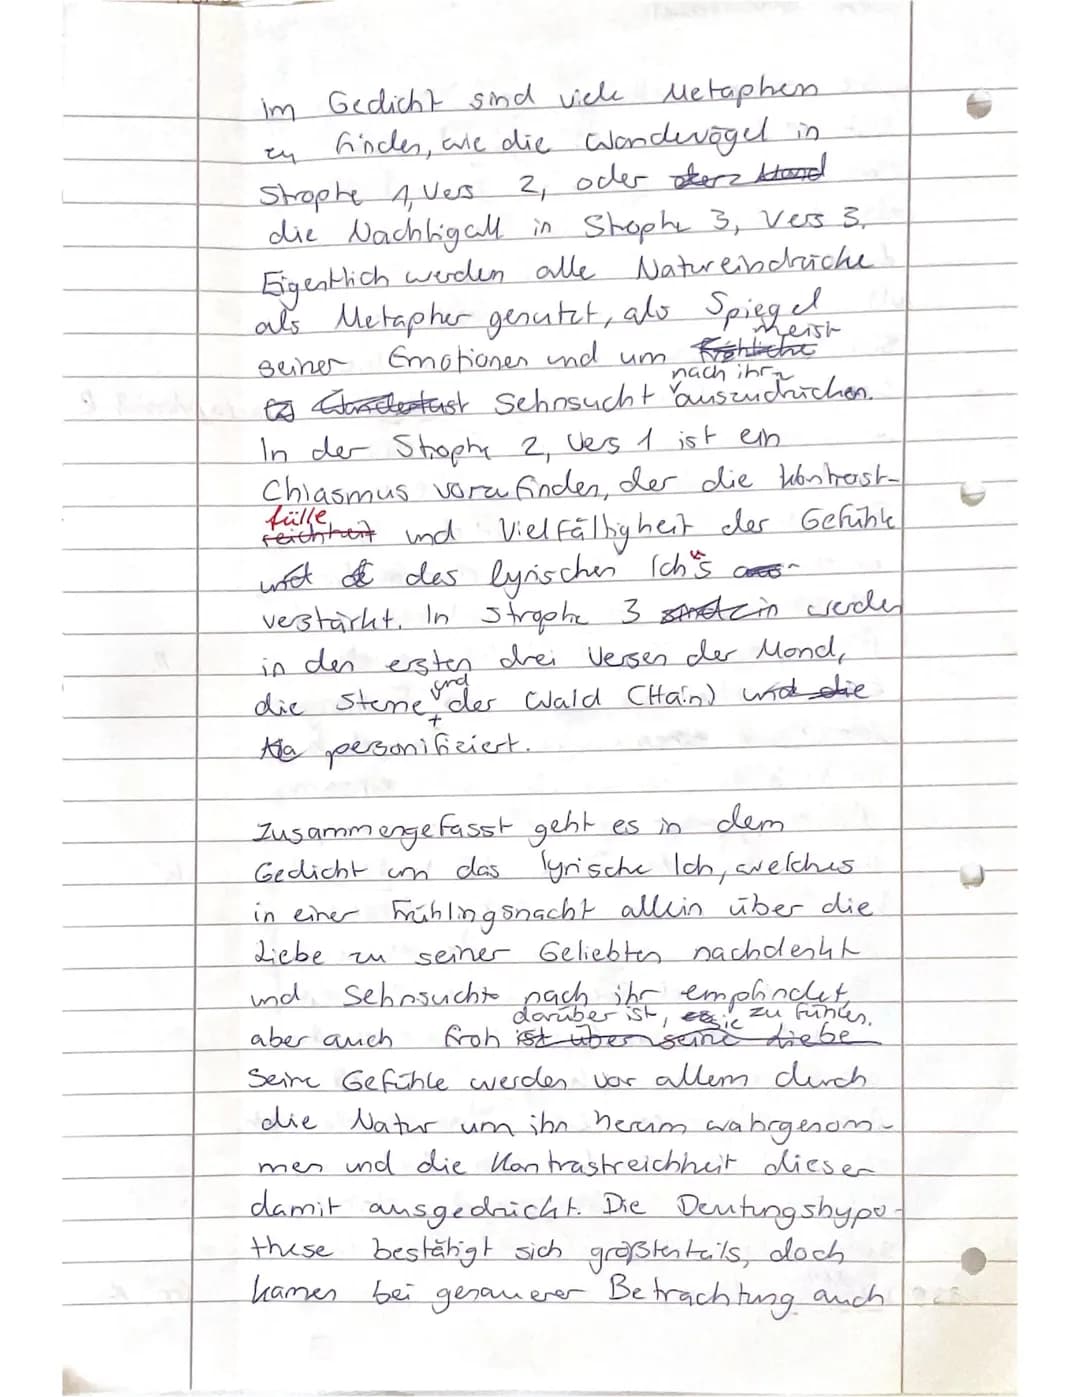 im Gedicht sind viele Metaphern
zu finden, wie die Wandervögel in
Strophe 1, Vers 2, oder
die Nachtigall in Strophe 3, Vers 3.
Eigentlich werden alle Natureindrücke
als Metapher genutzt, als Spiegel
meist
seiner Emotionen und um fröhliche
nach ihr
Sehnsucht auszudrücken.
In der Strophe 2, Vers 1 ist ein
Chiasmus vorzufinden, der die Kontrast-
fülle
reichheit und Vielfältigkeit der Gefühle
des lyrischen Ich's
verstärkt. In Strophe 3 werden
in den ersten drei Versen der Mond,
und
die Sterne der Wald (Hain) und die
personifiziert.
Zusammengefasst geht es in dem
Gedicht um das lyrische Ich, welches
in einer Frühlingsnacht allein über die
Liebe zu seiner Geliebten nachdenkt
und Sehnsucht nach ihr empfindet,
darüber ist, sie zu fühlen.
aber auch froh ist über seine Liebe
Seine Gefühle werden vor allem durch
die Natur um ihn herum wahrgenom-
men und die Kontrastreichheit dieser
damit ausgedrückt. Die Deutungshypo-
these bestätigt sich größtenteils, doch
kamen bei genauerer Betrachtung auch